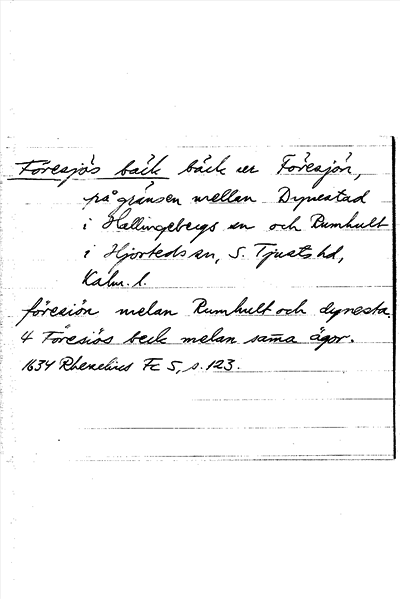 Föresjös bäck bäck ur Föresjön,
på gränsen mellan Dynestad
i Hallingebergs sn och Rumhult
i Hjorteds sn, S. Tjusts hd,
Kalm. l.
föresiön melan Rumhult och dynesta.
4 Föresiös beck melan sam̄a ägor.
1634 Rhezelius Fc 5, s. 123.